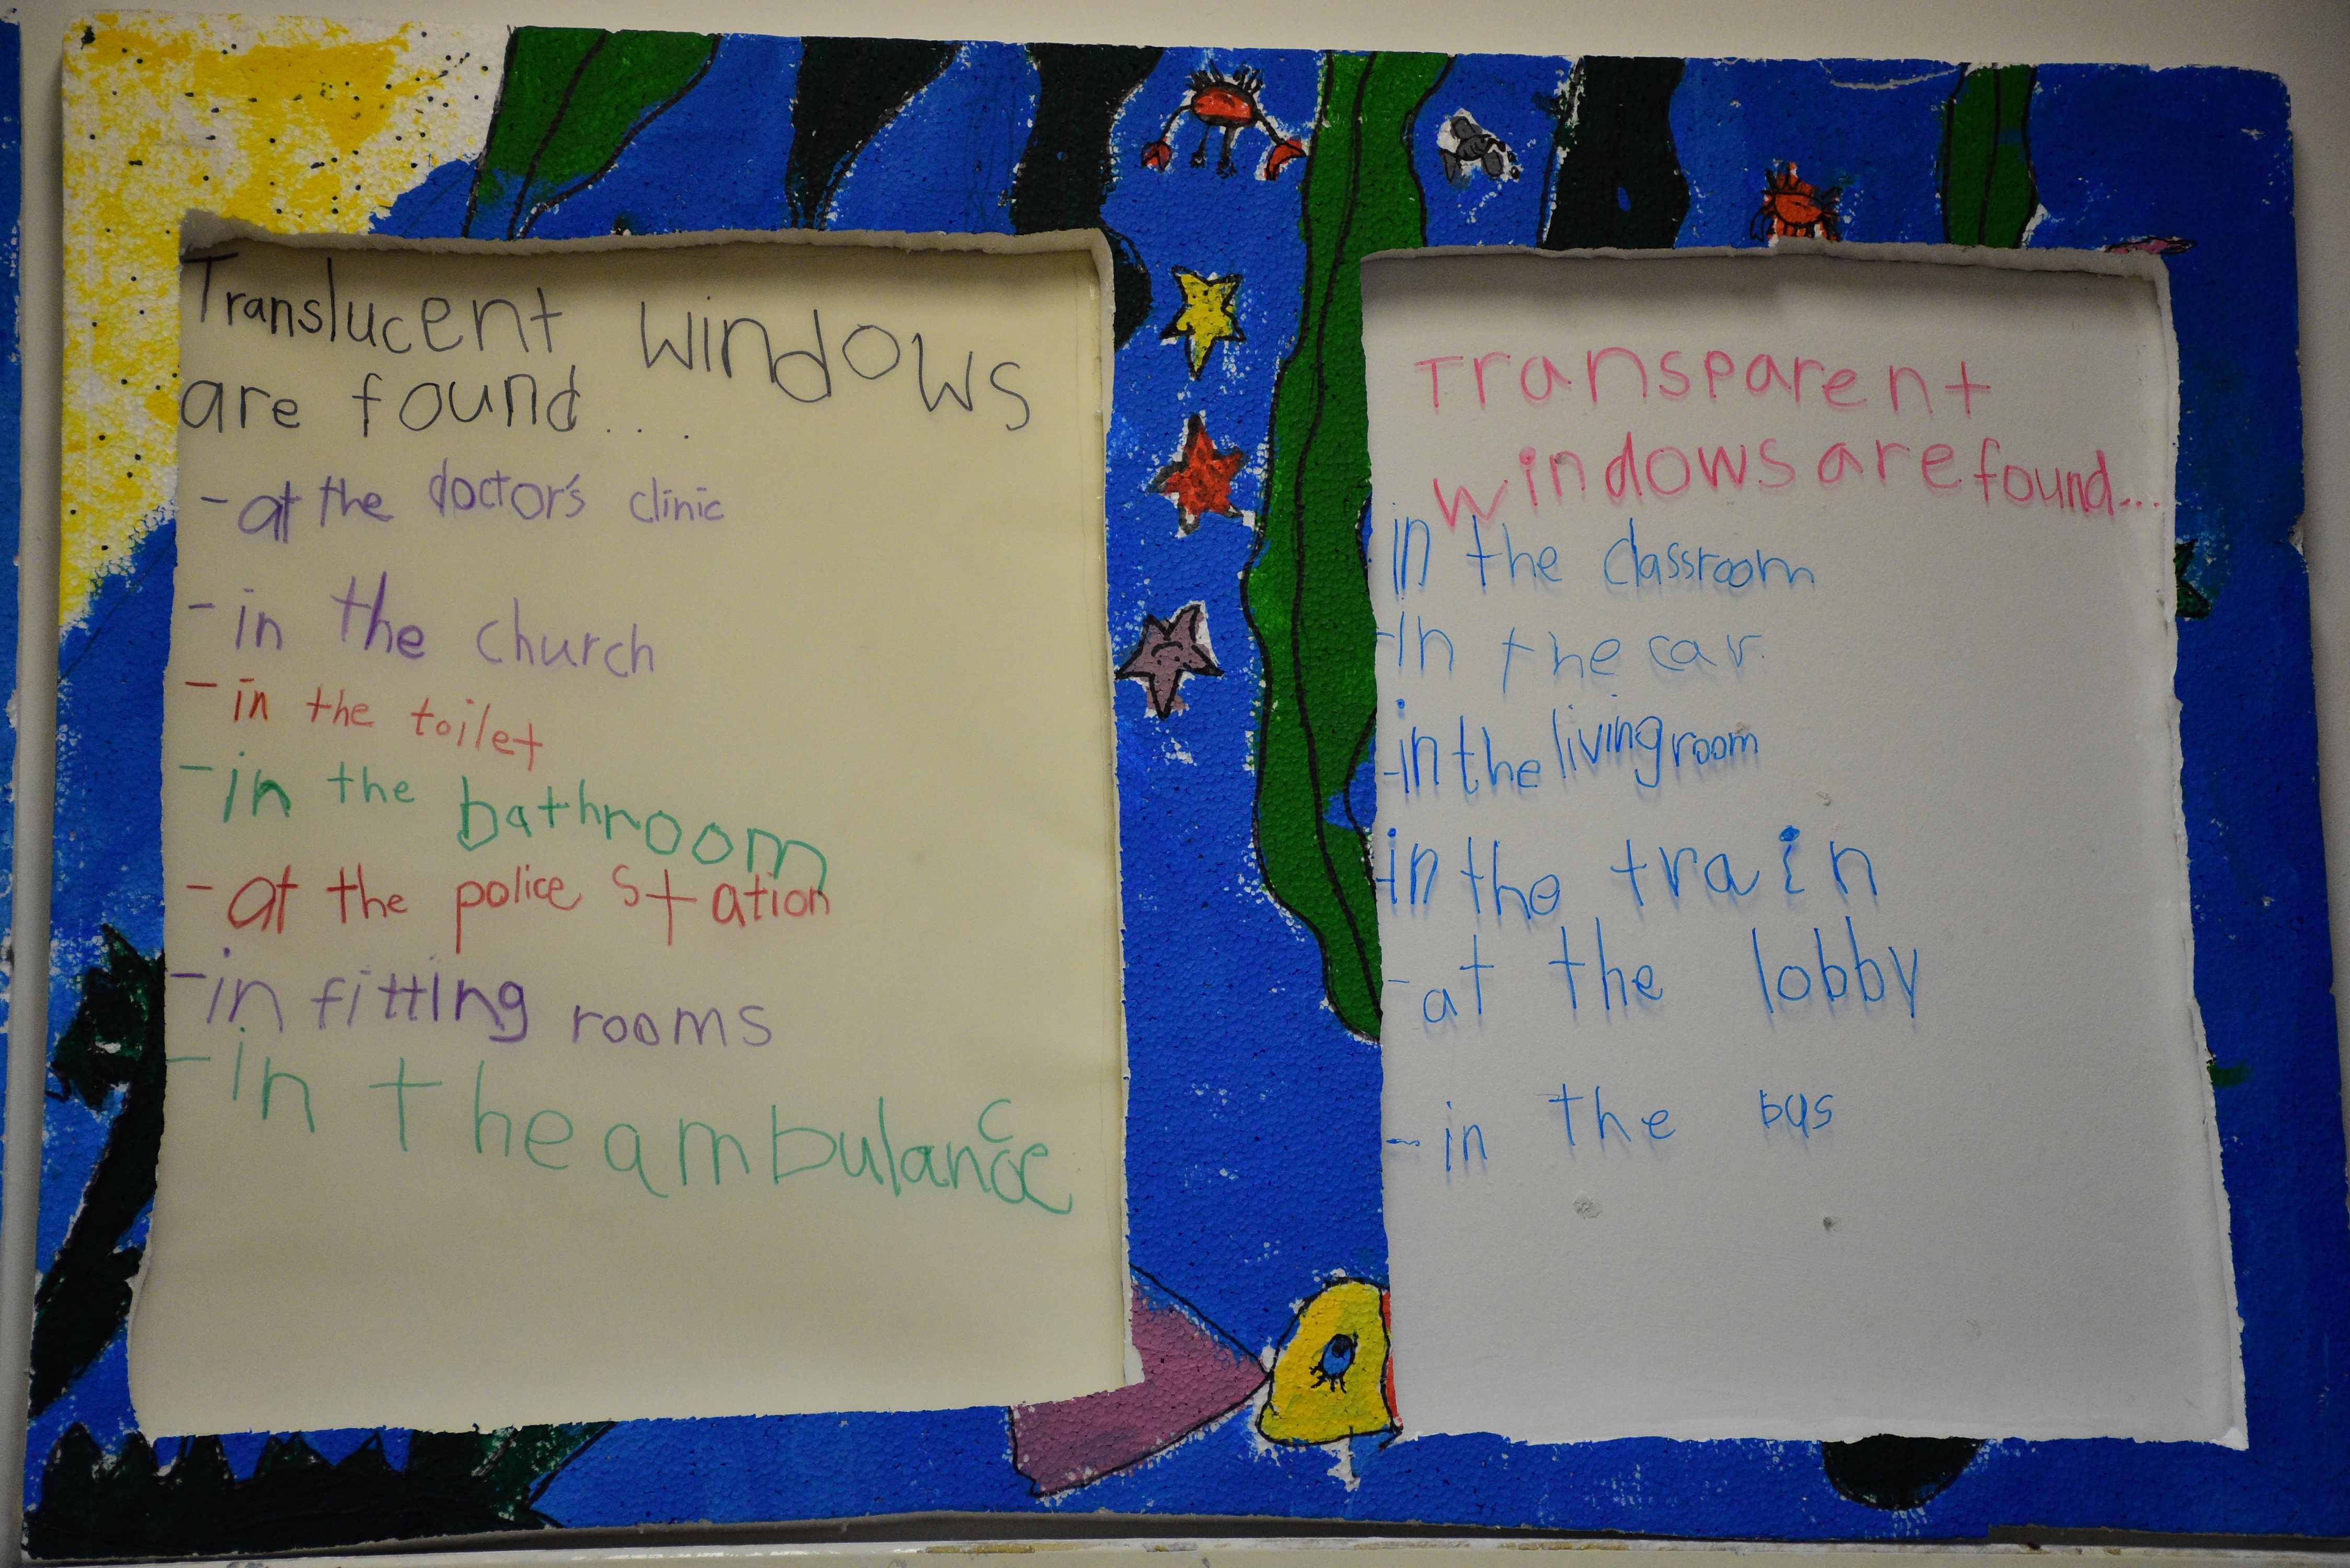 Translucent windows
are found...
-at the doctor's clinic
-in the church
-in the toilet
-in the bathroom
-at the police station
-in fitting rooms
-in the ambulance
Transparent
windows are found...
in the classroom
-in the car
-in the living room
-in the train
-at the lobby
-in the bus